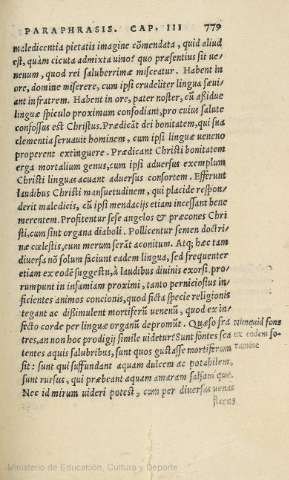 PARAPHRASIS. CAP. III 779
maledicentia pietatis imagine cōmendata, quid aliud
est, quàm cicuta admixta uino? quo præsentius sit ue-
nenum, quod rei saluberrimæ misceatur. Habent in
ore, domine miserere, cum ipsi crudeliter lingua sæui-
ant in fratrem. Habent in ore, pater noster, cū aßidue
linguæ spiculo proximum confodiant, pro cuius salute
confossus est Christus. Prædicāt dei bonitatem, qui sua
clementia seruauit hominem, cum ipsi linguæ ueneno
properent extinguere. Prædicant Christi bonitatem
erga mortalium genus, cum ipsi aduersus exemplum
Christi linguas acuant aduersus consortem. Efferunt
laudibus Christi mansuetudinem, qui placide respōn-
derit maledicis, cū ipsi mendacijs etiam incessant bene
merentem. Profitentur sese angelos & præcones Chri
sti, cum sint organa diaboli. Pollicentur semen doctri-
næ cœlestis, cum merum serāt aconitum. Atq; hæc tam
diuersa nō solum faciunt eadem lingua, sed frequenter
etiam ex eodē suggestu, à laudibus diuinis exorsi pro-
rumpunt in infamiam proximi, tanto perniciosius in-
ficientes animos concionis, quod ficta specie religionis
tegant ac dißimulent mortiferū uenenū, quod ex in-
fecto corde per linguæ organū depromūt. Quæso fra
tres, an non hoc prodigij simile uidetur? Sunt fontes sca
tentes aquis salubribus, sunt quos gustasse mortiferum
sit: sunt qui suffundant aquam dulcem ac potabilem,
sunt rursus, qui præbeant aquam amaram salsamque.
Nec id mirum uideri potest, cum per diuersas uenas
numquid fons
ex eodem fo-
ramine
Ministerio de Educación, Cultura y Deporte